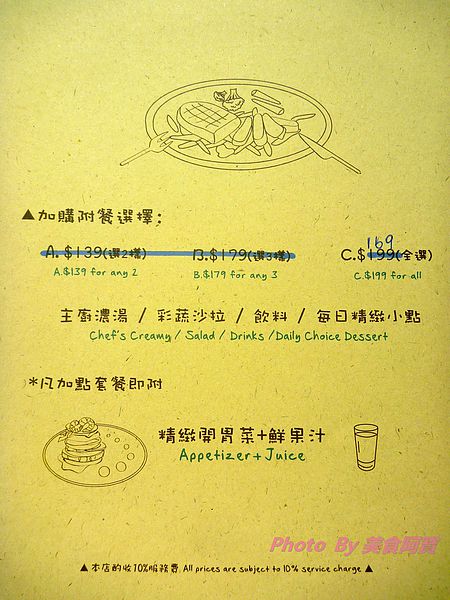 ▲加購附餐選擇:
A. $139(選2樣) B.$179(選3樣) C.$199(全選)
169
A.$139 for any 2 B.$179 for any 3 C.$199 for all
主廚濃湯 / 彩蔬沙拉 / 飲料 / 每日精緻小點
Chef's Creamy / Salad / Drinks /Daily Choice Dessert
*凡加點套餐即附
精緻開胃菜+鮮果汁
Appetizer+Juice
Photo By 美食阿賢
▲本店酌收10%服務費 All prices are subject to 10% service charge ▲